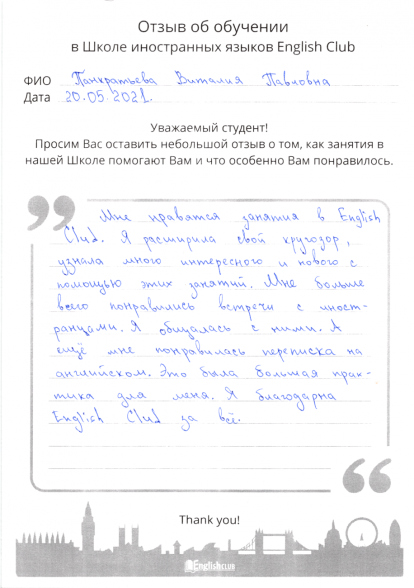 Отзыв об обучении
в Школе иностранных языков English Club
ФИО Панкратьева Виталия Павловна
Дата 20.05.2021.
Уважаемый студент!
Просим Вас оставить небольшой отзыв о том, как занятия в
нашей Школе помогают Вам и что особенно Вам понравилось.
Мне нравятся занятия в English
Club. Я расширила свой кругозор,
узнала много интересного и нового с
помощью этих занятий. Мне больше
всего понравились встречи с иност-
ранцами. Я общалась с ними. А
ещё мне понравилась переписка на
английском. Это была большая прак-
тика для меня. Я благодарна
English Club за всё.
Thank you!
English CLUB